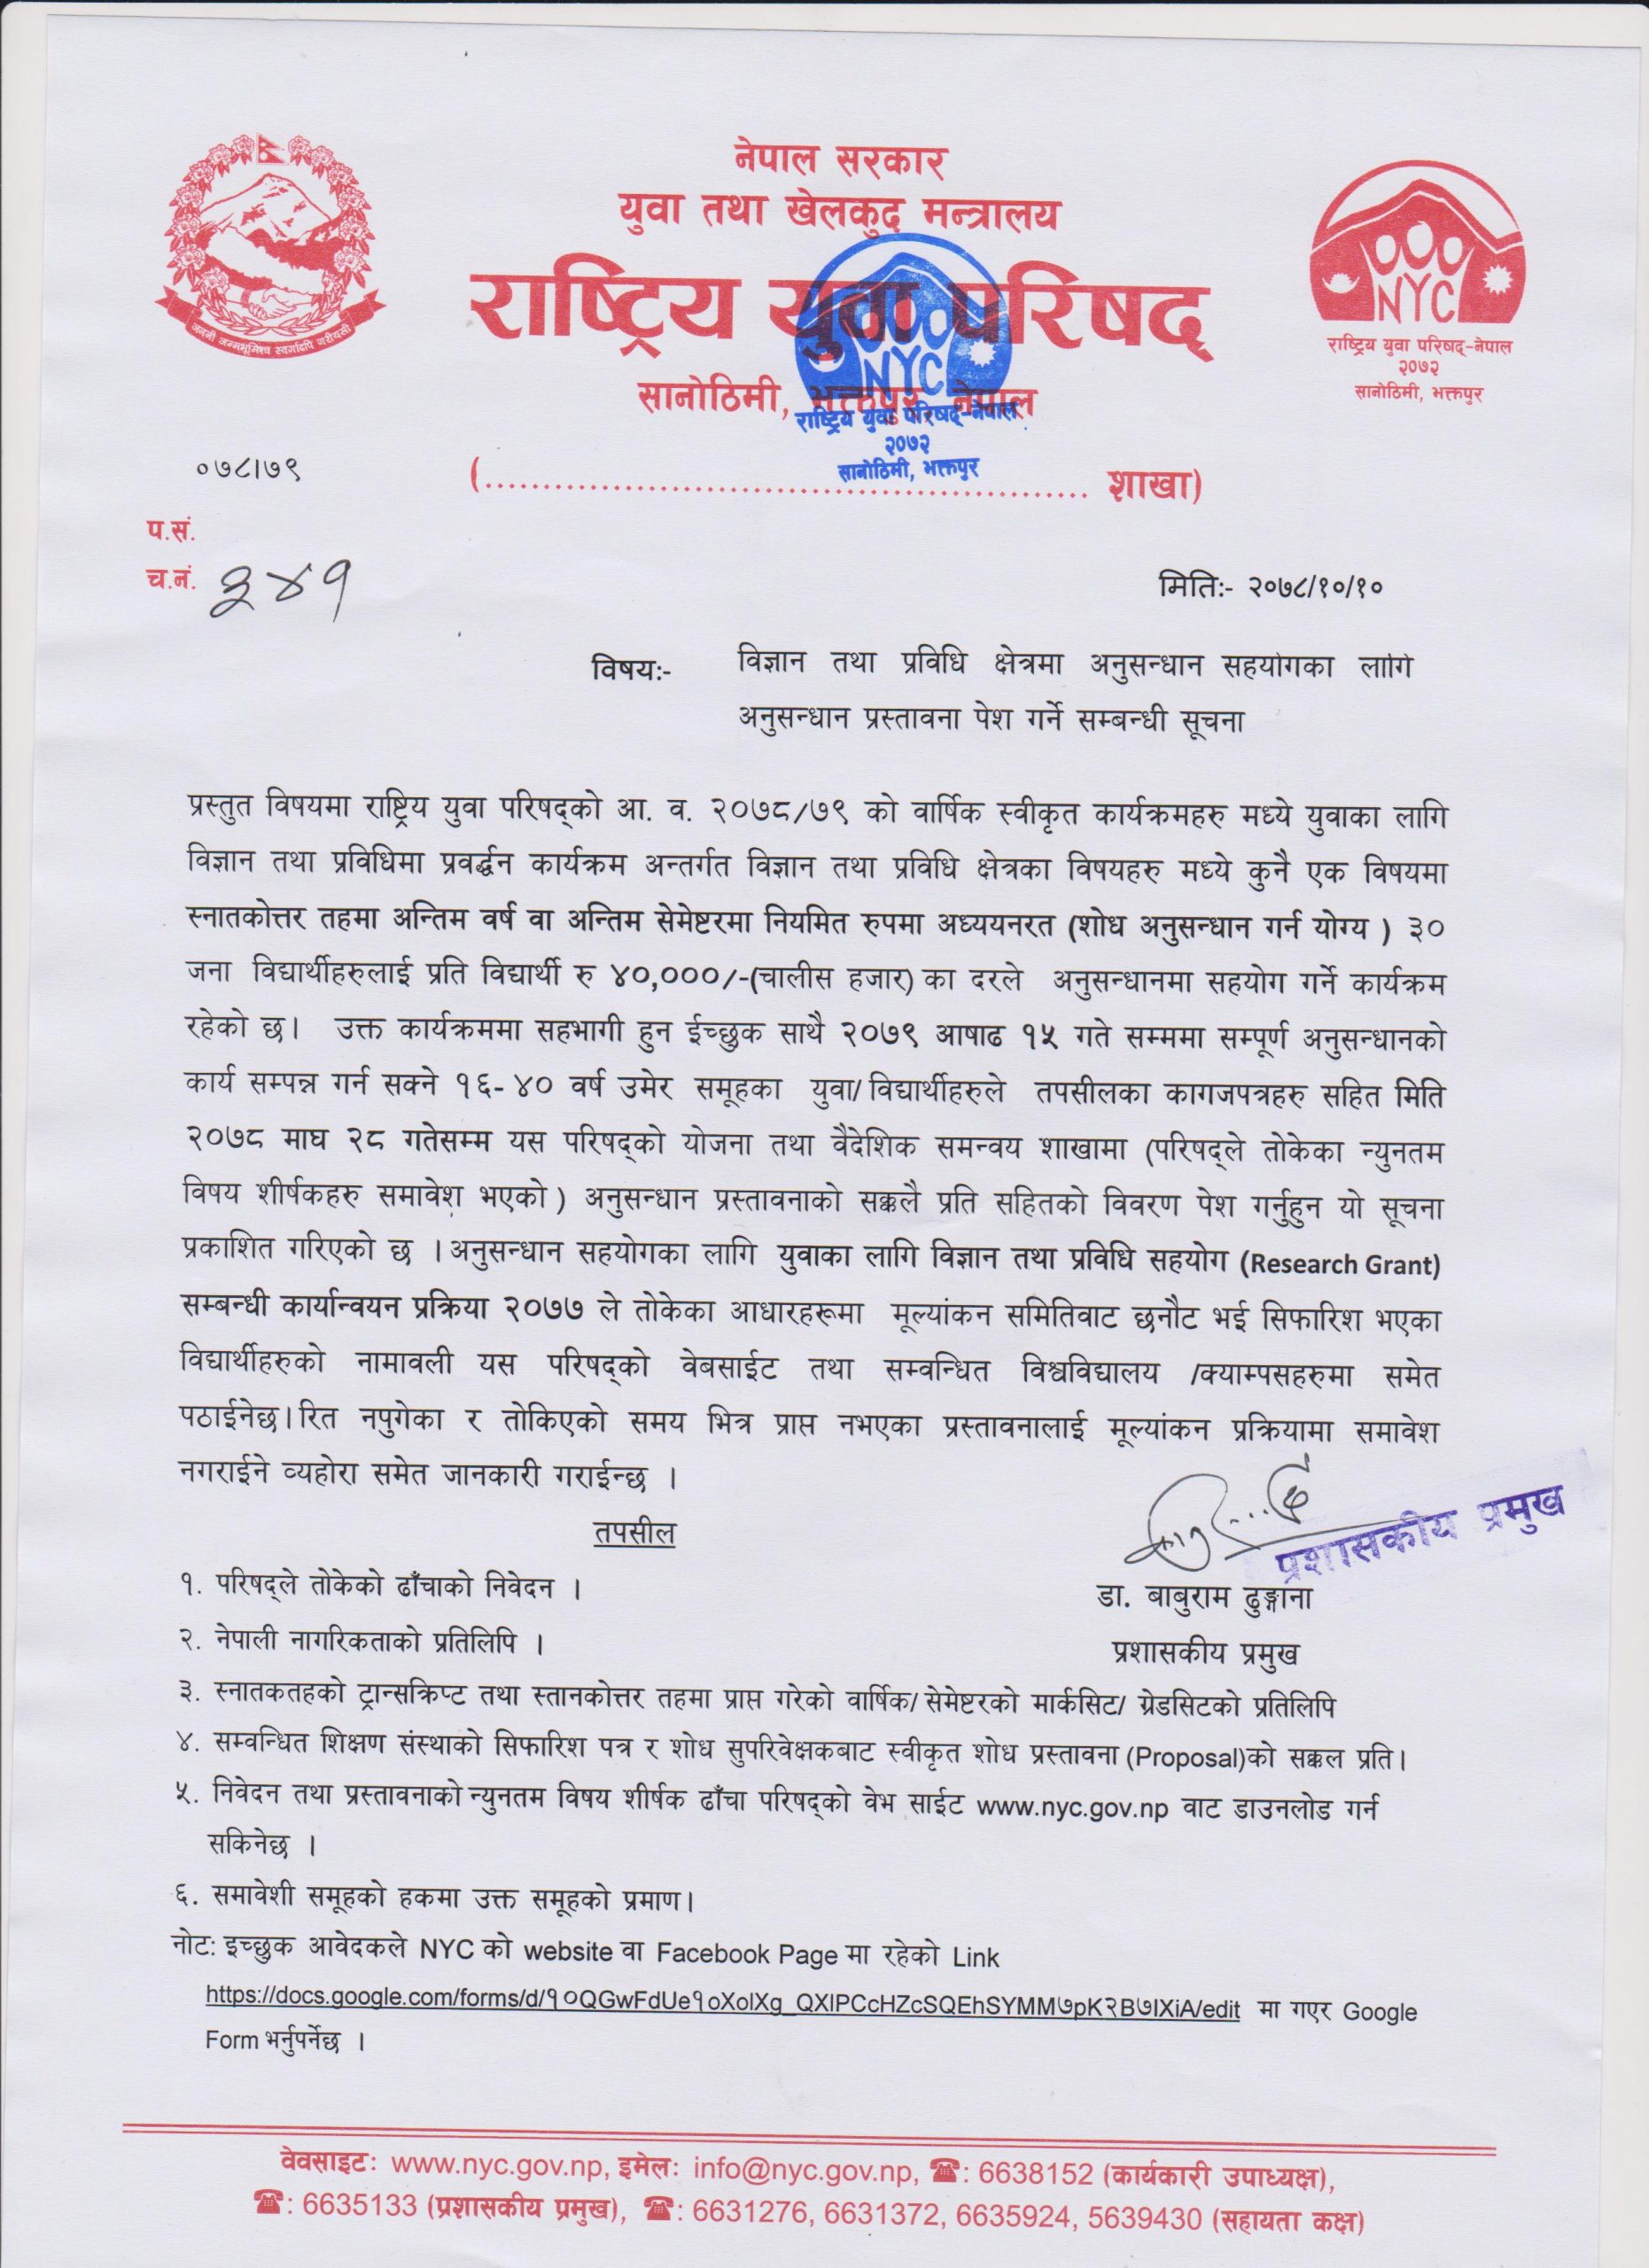 नेपाल सरकार
युवा तथा खेलकुद मन्त्रालय
राष्ट्रिय युवा परिषद्
सानोठिमी, भक्तपुर, नेपाल
जननी जन्मभूमिश्च स्वर्गादपि गरीयसी
NYC
राष्ट्रिय युवा परिषद्-नेपाल
२०७२
सानोठिमी, भक्तपुर
NYC
राष्ट्रिय युवा परिषद्-नेपाल
२०७२
सानोठिमी, भक्तपुर
०७८।७९
(.................................................... शाखा)
प.सं.
च.नं. ३४१
मितिः- २०७८/१०/१०
विषयः- विज्ञान तथा प्रविधि क्षेत्रमा अनुसन्धान सहयोगका लागि
अनुसन्धान प्रस्तावना पेश गर्ने सम्बन्धी सूचना
प्रस्तुत विषयमा राष्ट्रिय युवा परिषद्को आ. व. २०७८/७९ को वार्षिक स्वीकृत कार्यक्रमहरु मध्ये युवाका लागि
विज्ञान तथा प्रविधिमा प्रवर्द्धन कार्यक्रम अन्तर्गत विज्ञान तथा प्रविधि क्षेत्रका विषयहरु मध्ये कुनै एक विषयमा
स्नातकोत्तर तहमा अन्तिम वर्ष वा अन्तिम सेमेष्टरमा नियमित रुपमा अध्ययनरत (शोध अनुसन्धान गर्न योग्य ) ३०
जना विद्यार्थीहरुलाई प्रति विद्यार्थी रु ४०,०००/-(चालीस हजार) का दरले अनुसन्धानमा सहयोग गर्ने कार्यक्रम
रहेको छ। उक्त कार्यक्रममा सहभागी हुन ईच्छुक साथै २०७९ आषाढ १५ गते सम्ममा सम्पूर्ण अनुसन्धानको
कार्य सम्पन्न गर्न सक्ने १६- ४० वर्ष उमेर समूहका युवा/ विद्यार्थीहरुले तपसीलका कागजपत्रहरु सहित मिति
२०७८ माघ २८ गतेसम्म यस परिषद्को योजना तथा वैदेशिक समन्वय शाखामा (परिषद्ले तोकेका न्युनतम
विषय शीर्षकहरु समावेश भएको ) अनुसन्धान प्रस्तावनाको सक्कलै प्रति सहितको विवरण पेश गर्नुहुन यो सूचना
प्रकाशित गरिएको छ । अनुसन्धान सहयोगका लागि युवाका लागि विज्ञान तथा प्रविधि सहयोग (Research Grant)
सम्बन्धी कार्यान्वयन प्रक्रिया २०७७ ले तोकेका आधारहरूमा मूल्यांकन समितिवाट छनौट भई सिफारिश भएका
विद्यार्थीहरुको नामावली यस परिषद्को वेबसाईट तथा सम्वन्धित विश्वविद्यालय /क्याम्पसहरुमा समेत
पठाईनेछ। रित नपुगेका र तोकिएको समय भित्र प्राप्त नभएका प्रस्तावनालाई मूल्यांकन प्रक्रियामा समावेश
नगराईने व्यहोरा समेत जानकारी गराईन्छ ।
प्रशासकीय प्रमुख
डा. बाबुराम ढुङ्गाना
प्रशासकीय प्रमुख
तपसील
१. परिषद्ले तोकेको ढाँचाको निवेदन ।
२. नेपाली नागरिकताको प्रतिलिपि ।
३. स्नातकतहको ट्रान्सक्रिप्ट तथा स्तानकोत्तर तहमा प्राप्त गरेको वार्षिक/ सेमेष्टरको मार्कसिट/ ग्रेडसिटको प्रतिलिपि
४. सम्वन्धित शिक्षण संस्थाको सिफारिश पत्र र शोध सुपरिवेक्षकबाट स्वीकृत शोध प्रस्तावना (Proposal)को सक्कल प्रति।
५. निवेदन तथा प्रस्तावनाको न्युनतम विषय शीर्षक ढाँचा परिषद्को वेभ साईट www.nyc.gov.np वाट डाउनलोड गर्न
सकिनेछ ।
६. समावेशी समूहको हकमा उक्त समूहको प्रमाण।
नोट: इच्छुक आवेदकले NYC को website वा Facebook Page मा रहेको Link
https://docs.google.com/forms/d/१०QGwFdUe१oXolXg_QXlPCcHZcSQEhSYMM७pK२B७IXiA/edit मा गएर Google
Form भर्नुपर्नेछ ।
वेवसाइटः www.nyc.gov.np, इमेलः info@nyc.gov.np, ☎: 6638152 (कार्यकारी उपाध्यक्ष),
☎: 6635133 (प्रशासकीय प्रमुख), ☎: 6631276, 6631372, 6635924, 5639430 (सहायता कक्ष)